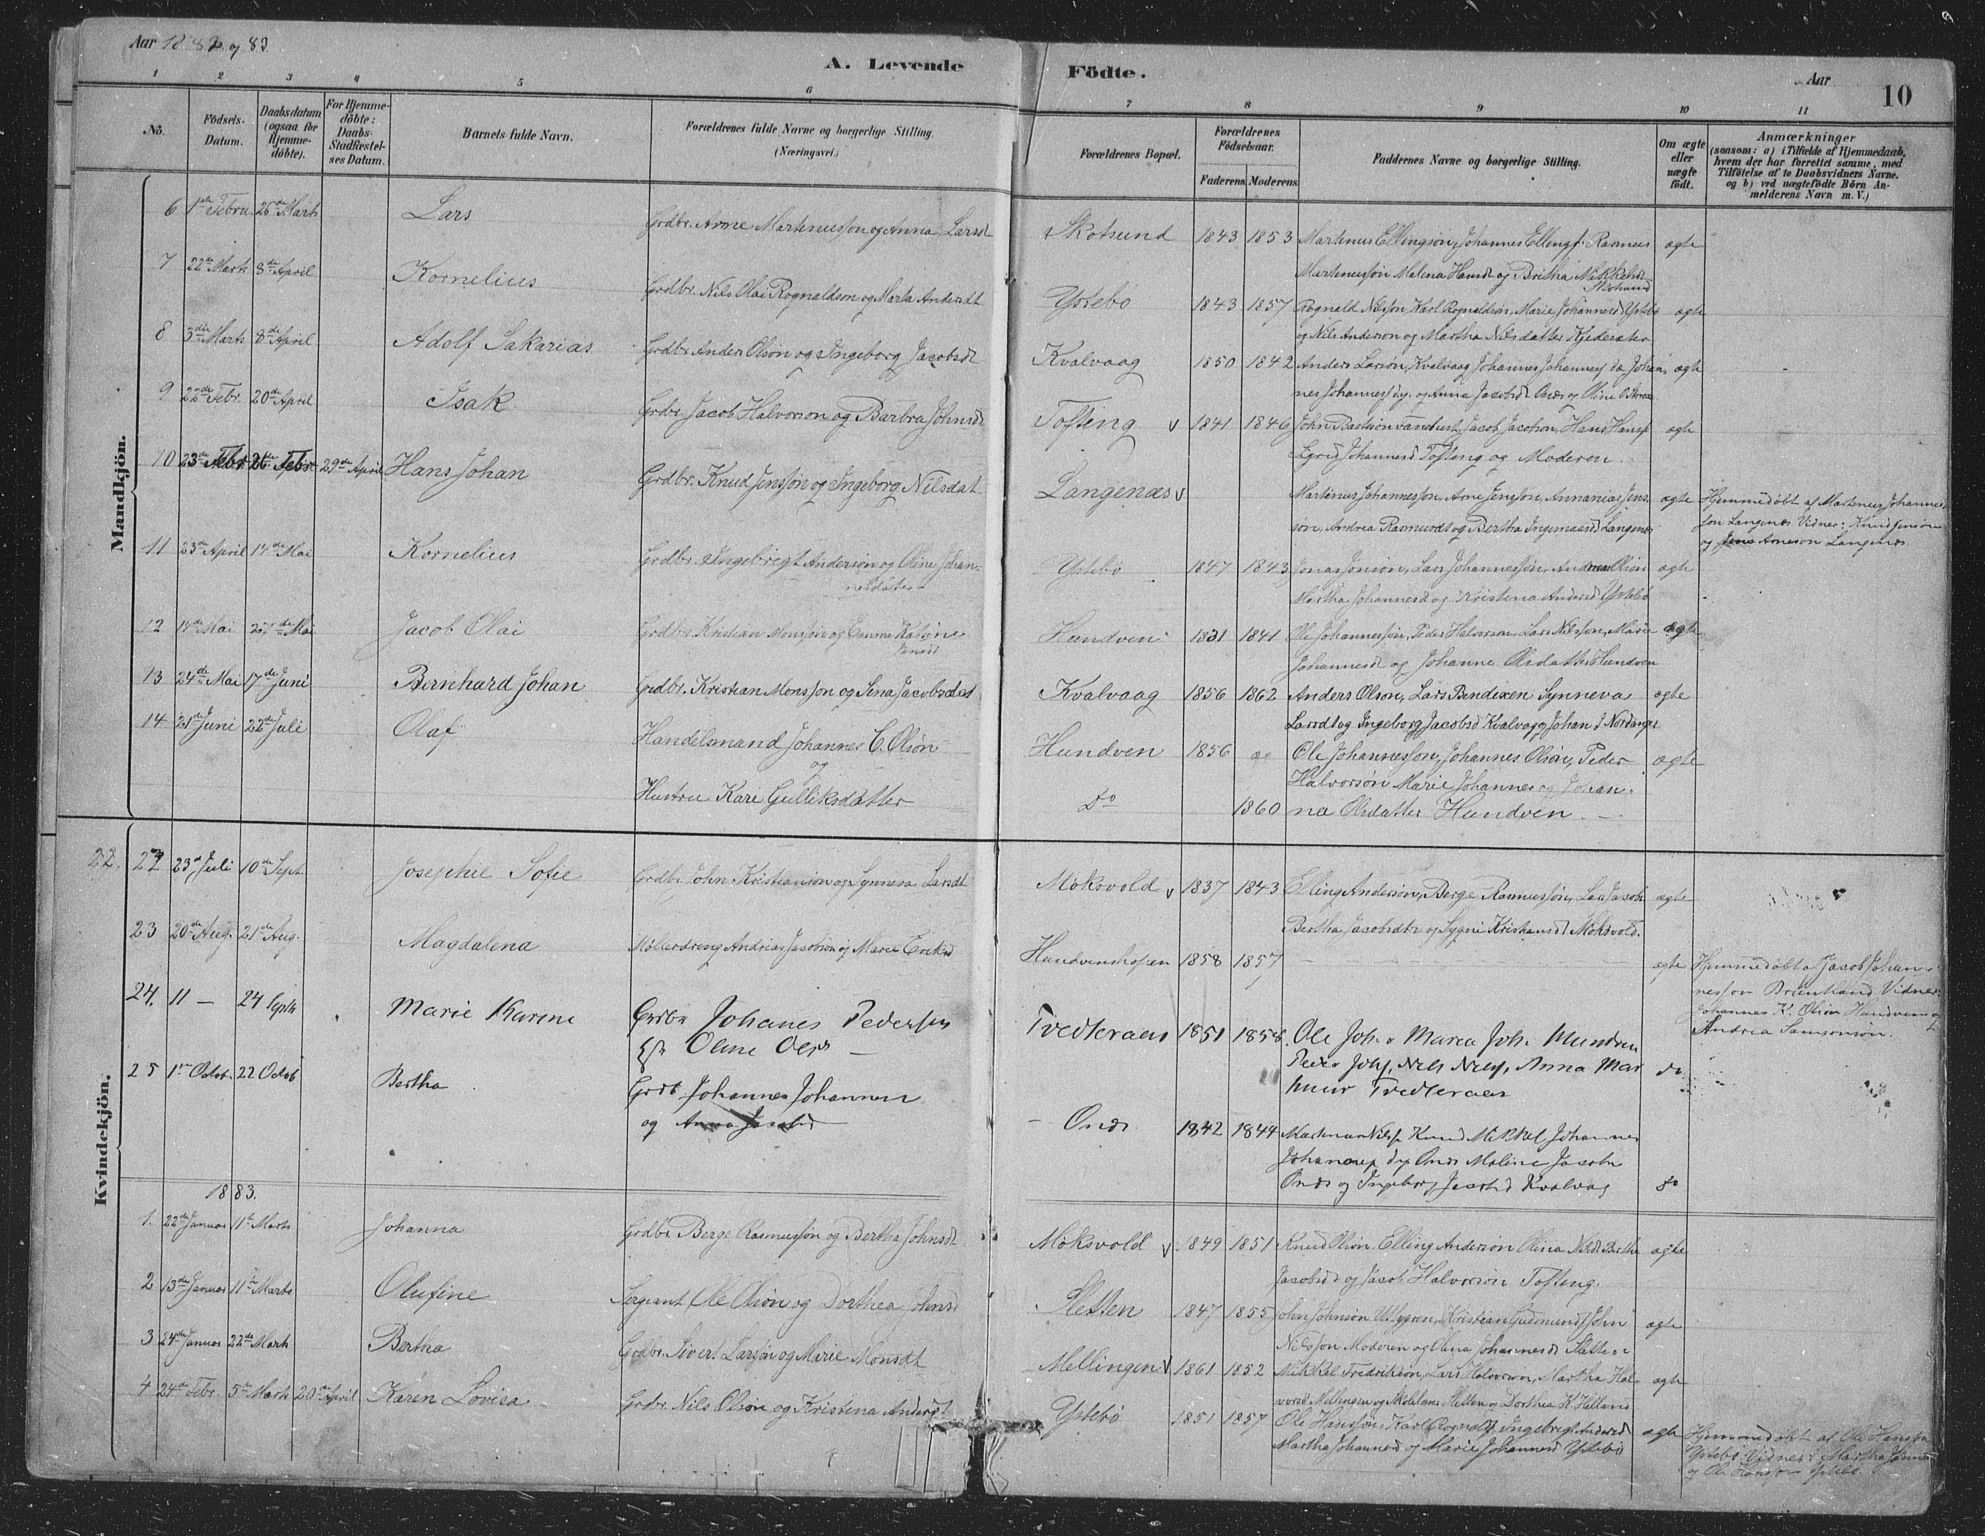 Aar 1882 og 83
A. Levende Födte.
Aar
10
1 2 3 4 5 6 7 8 9 10 11
No.
Födsels-Datum.
Daabsdatum (ogsaa for Hjemme-döbte).
For Hjemme-döbte: Daabs-Stadfæstel-ses Datum.
Barnets fulde Navn.
Forældrenes fulde Navne og borgerlige Stilling. (Næringsvei.)
Forældrenes Bopæl.
Forældrenes Födselsaar.
Faderens. Moderens.
Faddernes Navne og borgerlige Stilling.
Om ægte eller uægte födt.
Anmærkninger (saasom: a) i Tilfælde af Hjemmedaab, hvem der har forrettet samme, med Tilföielse af to Daabsvidners Navne. og b) ved uægtefödte Börn An-melderens Navn m. V.)
Mandkjön.
6 1ste Febru 26de Marts Lars Grdbr. Arne Martinussøn og Anna Larsd Skotsund 1843 1853 Martinus Ellingsøn, Johannes Ellings. Rasmus ægte
Martinussøn Malena Hansd og Britha Mikkelsd
7 22de Marts 8de April Kornelius Grdbr. Nils Olai Rognaldsøn og Marta Andersdt Ystebø 1843 1857 Rognald Nilsson Karl Rognaldsøn, Marie Johannesd Ystebø ægte
og Nils Andersøn og Martha Nilsdatter
8 3die Marts 8de April Adolf Sakarias Grdbr. Anders Olsøn og Ingeborg Jacobsdt Kvalvaag 1850 1842 Anders Larsøn, Kvalvaag Johannes Johannes ægte
nes Johannes og Anna Jacobsd Onæs og Oline
9 22de Febr. 20de April Isak Grdbr. Jacob Halvorsøn og Barbra Johnsdt Tofting v 1841 1846 John Jacob Jacobsøn, Hans Hans ægte
Johannesd Tofting og Moderen.
10 23de Febr 26de Febr 29de April Hans Johan Grdbr. Knud Jenssøn og Ingeborg Nilsdat Langenæs v Martinus Johannessøn, Arne Jenssøn, Annanias Jens ægte Hjemmedøbt af Martinus Johannes
søn, Andrea Rasmusdt og Bertha Ingemarsd Langenes søn Langenes Vidner: Knud Jensøn
og Jens Arneson Langenes.
11 23de April 14de Mai Kornelius Grdbr. Ingebrigt Andersøn og Oline Johan- Ystebø 1847 1843 Jonas Jonsøn, Lars Johannessøn, Andreas Olsøn ægte
nesdatter Martha Johannesd og Kristena Andersd Ystebø
12 14de Mai 27de Mai Jacob Olai Grdbr Kristian Monssøn og Emma Katrine Hundven 1831 1841 Ole Johannessøn, Peder Halvorsøn, Lars Nilssøn, Marie ægte
Jansd Johannesd og Johanne Olsdatter Hundven
13 24de Mai 17de Juni Bernhard Johan Grdbr. Kristian Monsson og Sina Jacobsdat Kvalvaag 1856 1862 Anders Olsøn, Lars Bendixen Synneva ægte
Larsdt og Ingeborg Jacobsd Kvalvaag, Johan J Nordanger
14 21de Juni 22de Juli Olaf Handelsmand Johannes C. Olsøn Hundven 1856 Ole Johannessøn, Johannes Olsøn, Peder ægte
og Halvorsøn Marie Johannes og Johan-
Hustru Kari Gulliksdatter Do 1860 na Olsdatter Hundven.
Kvindekjön.
22. 22 23de Juli 10de Sept Josephie Sofie Grdbr. John Kristiansøn og Synneva Larsdt Moksvold v 1837 1843 Elling Andersøn, Berge Rasmussøn, Lars Jacob ægte
Bertha Jacobsdtr og Sygni Kristiansd Moksvold.
23 20de Aug. 21de Aug. Magdalena Møllerdreng Andrias Jacobsøn og Marie Eriksd Hundvenshopen 1858 1857 ægte Hjemmedøbt a Jacob Johan-
nesson Vidner:
Johannes K. Olsøn Hundven og
Andrea Samsonsøn.
24. 11 — 24 Septb Marie Karine Grdbr Johanes Pedersen Tvedteraas 1851 1858 Ole Joh. Maria Joh. Hundven
Oline Olsd Peder Johs, Nels Nels, Anna Mar do
Tvedteraas
25 1ste Octob. 22 Octob Bertha Grdb Johannes Johannesse Onæs 1842 1844 Martinus Nils Knud Mikkel Johannes
og Anna Jacobsd Johannes Onæs Maline Jacobs
Onæs og Ingeborg Jacobsd Kvalvag do
1883.
1. 22de Januar 11te Marts Johanna Grdbr Berge Rasmussøn og Bertha Johnsdt Moksvold v 1849 1851 Knud Olsøn, Elling Andersøn Olina Nilsd Bertha ægte
Jacobsd og Jacob Halvorsøn Tofting.
2 13de Januar 11te Marts Olufine Sergeant Ole Olsøn og Dorthea Johnsd Sletten 1847 1855 John Johnsøn Utlygren, Kristian Gudmunds John ægte
Nilssøn Moderen og Elena Johannesd Sletten
3 24de Januar 22de Marts Bertha Grdbr. Sivert Larsøn og Marie Monsdt Mellingen v 1861 1852 Mikkel Fredriksøn, Lars Halvorsøn, Martha Hal- ægte
vorsd Mellingen og Sletten og Dorthea K Helland
4 24de Febr. 5te Marts 20de April Karen Lovisa Grdbr. Nils Olsøn og Kristena Andersdt Ystebø 1851 1857 Ole Hanssøn, Karl Rognalds, Ingebrigt Andersd ægte Hjemmedøbt af Ole Hanssøn
Martha Johannesd og Marie Johannesd Ystebø Ystebø. Vidner: Martha Johannes
og Ole Hansson Ystebø.